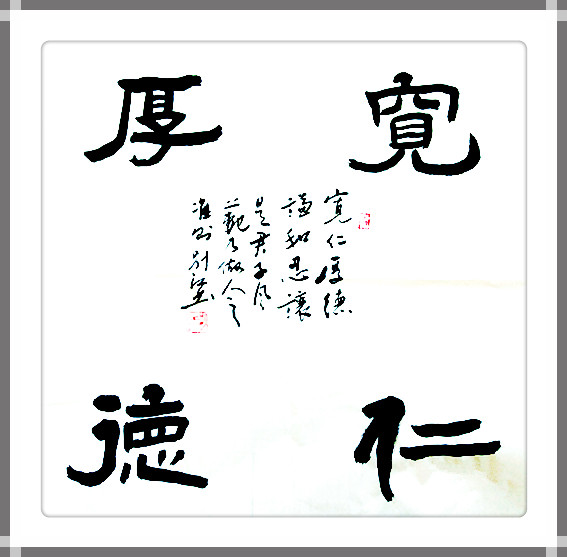 寬仁
厚德
寬仁厚德
謙和忍讓
是君子風
範乃做人之
準則